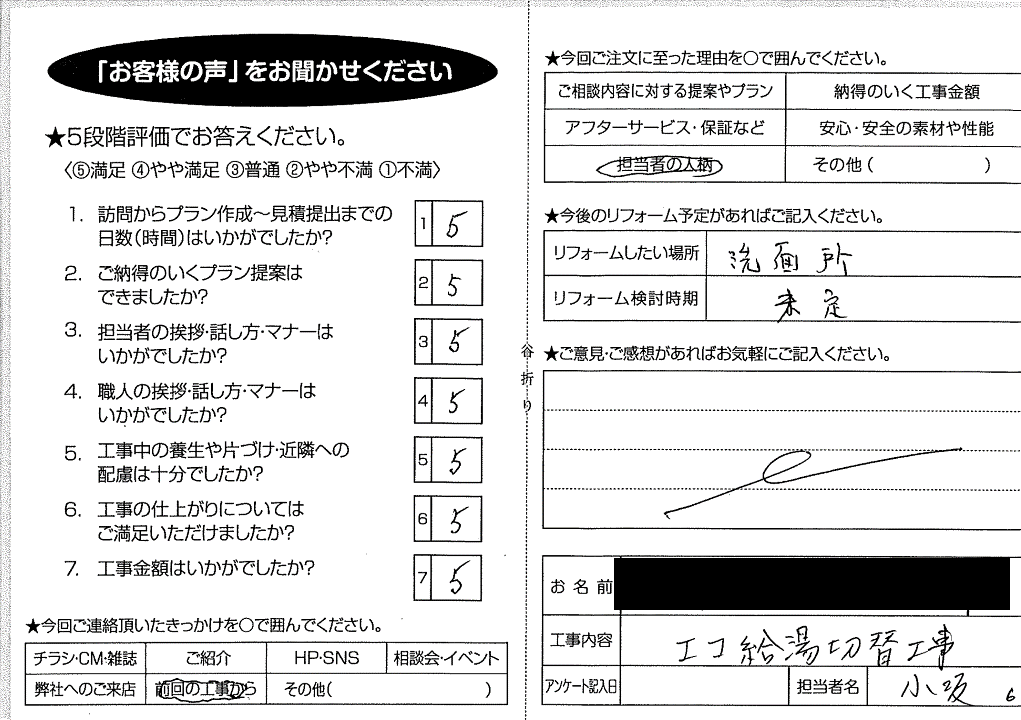 「お客様の声」をお聞かせください
★5段階評価でお答えください。
〈⑤満足 ④やや満足 ③普通 ②やや不満 ①不満〉
1. 訪問からプラン作成~見積提出までの
日数(時間)はいかがでしたか?
1 5
2. ご納得のいくプラン提案は
できましたか?
2 5
3. 担当者の挨拶・話し方・マナーは
いかがでしたか?
3 5
4. 職人の挨拶・話し方・マナーは
いかがでしたか?
4 5
5. 工事中の養生や片づけ・近隣への
配慮は十分でしたか?
5 5
6. 工事の仕上がりについては
ご満足いただけましたか?
6 5
7. 工事金額はいかがでしたか?
7 5
★今回ご連絡頂いたきっかけを○で囲んでください。
チラシ・CM・雑誌 ご紹介 HP・SNS 相談会・イベント
弊社へのご来店 前回の工事から その他( )
谷折り
★今回ご注文に至った理由を○で囲んでください。
ご相談内容に対する提案やプラン 納得のいく工事金額
アフターサービス・保証など 安心・安全の素材や性能
担当者の人柄 その他( )
★今後のリフォーム予定があればご記入ください。
リフォームしたい場所 洗面所
リフォーム検討時期 未定
★ご意見・ご感想があればお気軽にご記入ください。
お名前
工事内容 エコ給湯切替工事
アンケート記入日 担当者名 小坂 6